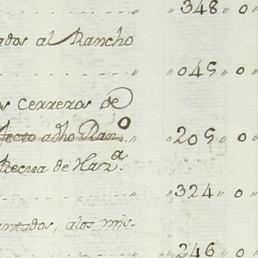 „ 348 „ 0 „
ados al Rancho
„ 045 „ 0 „
os Cerreros de
fecto a dho Ran.o „ 205 „ 0 „
Recua de Haz.a
„ 324 „ 0 „
antados, a los mis-
„ 246 „ 0